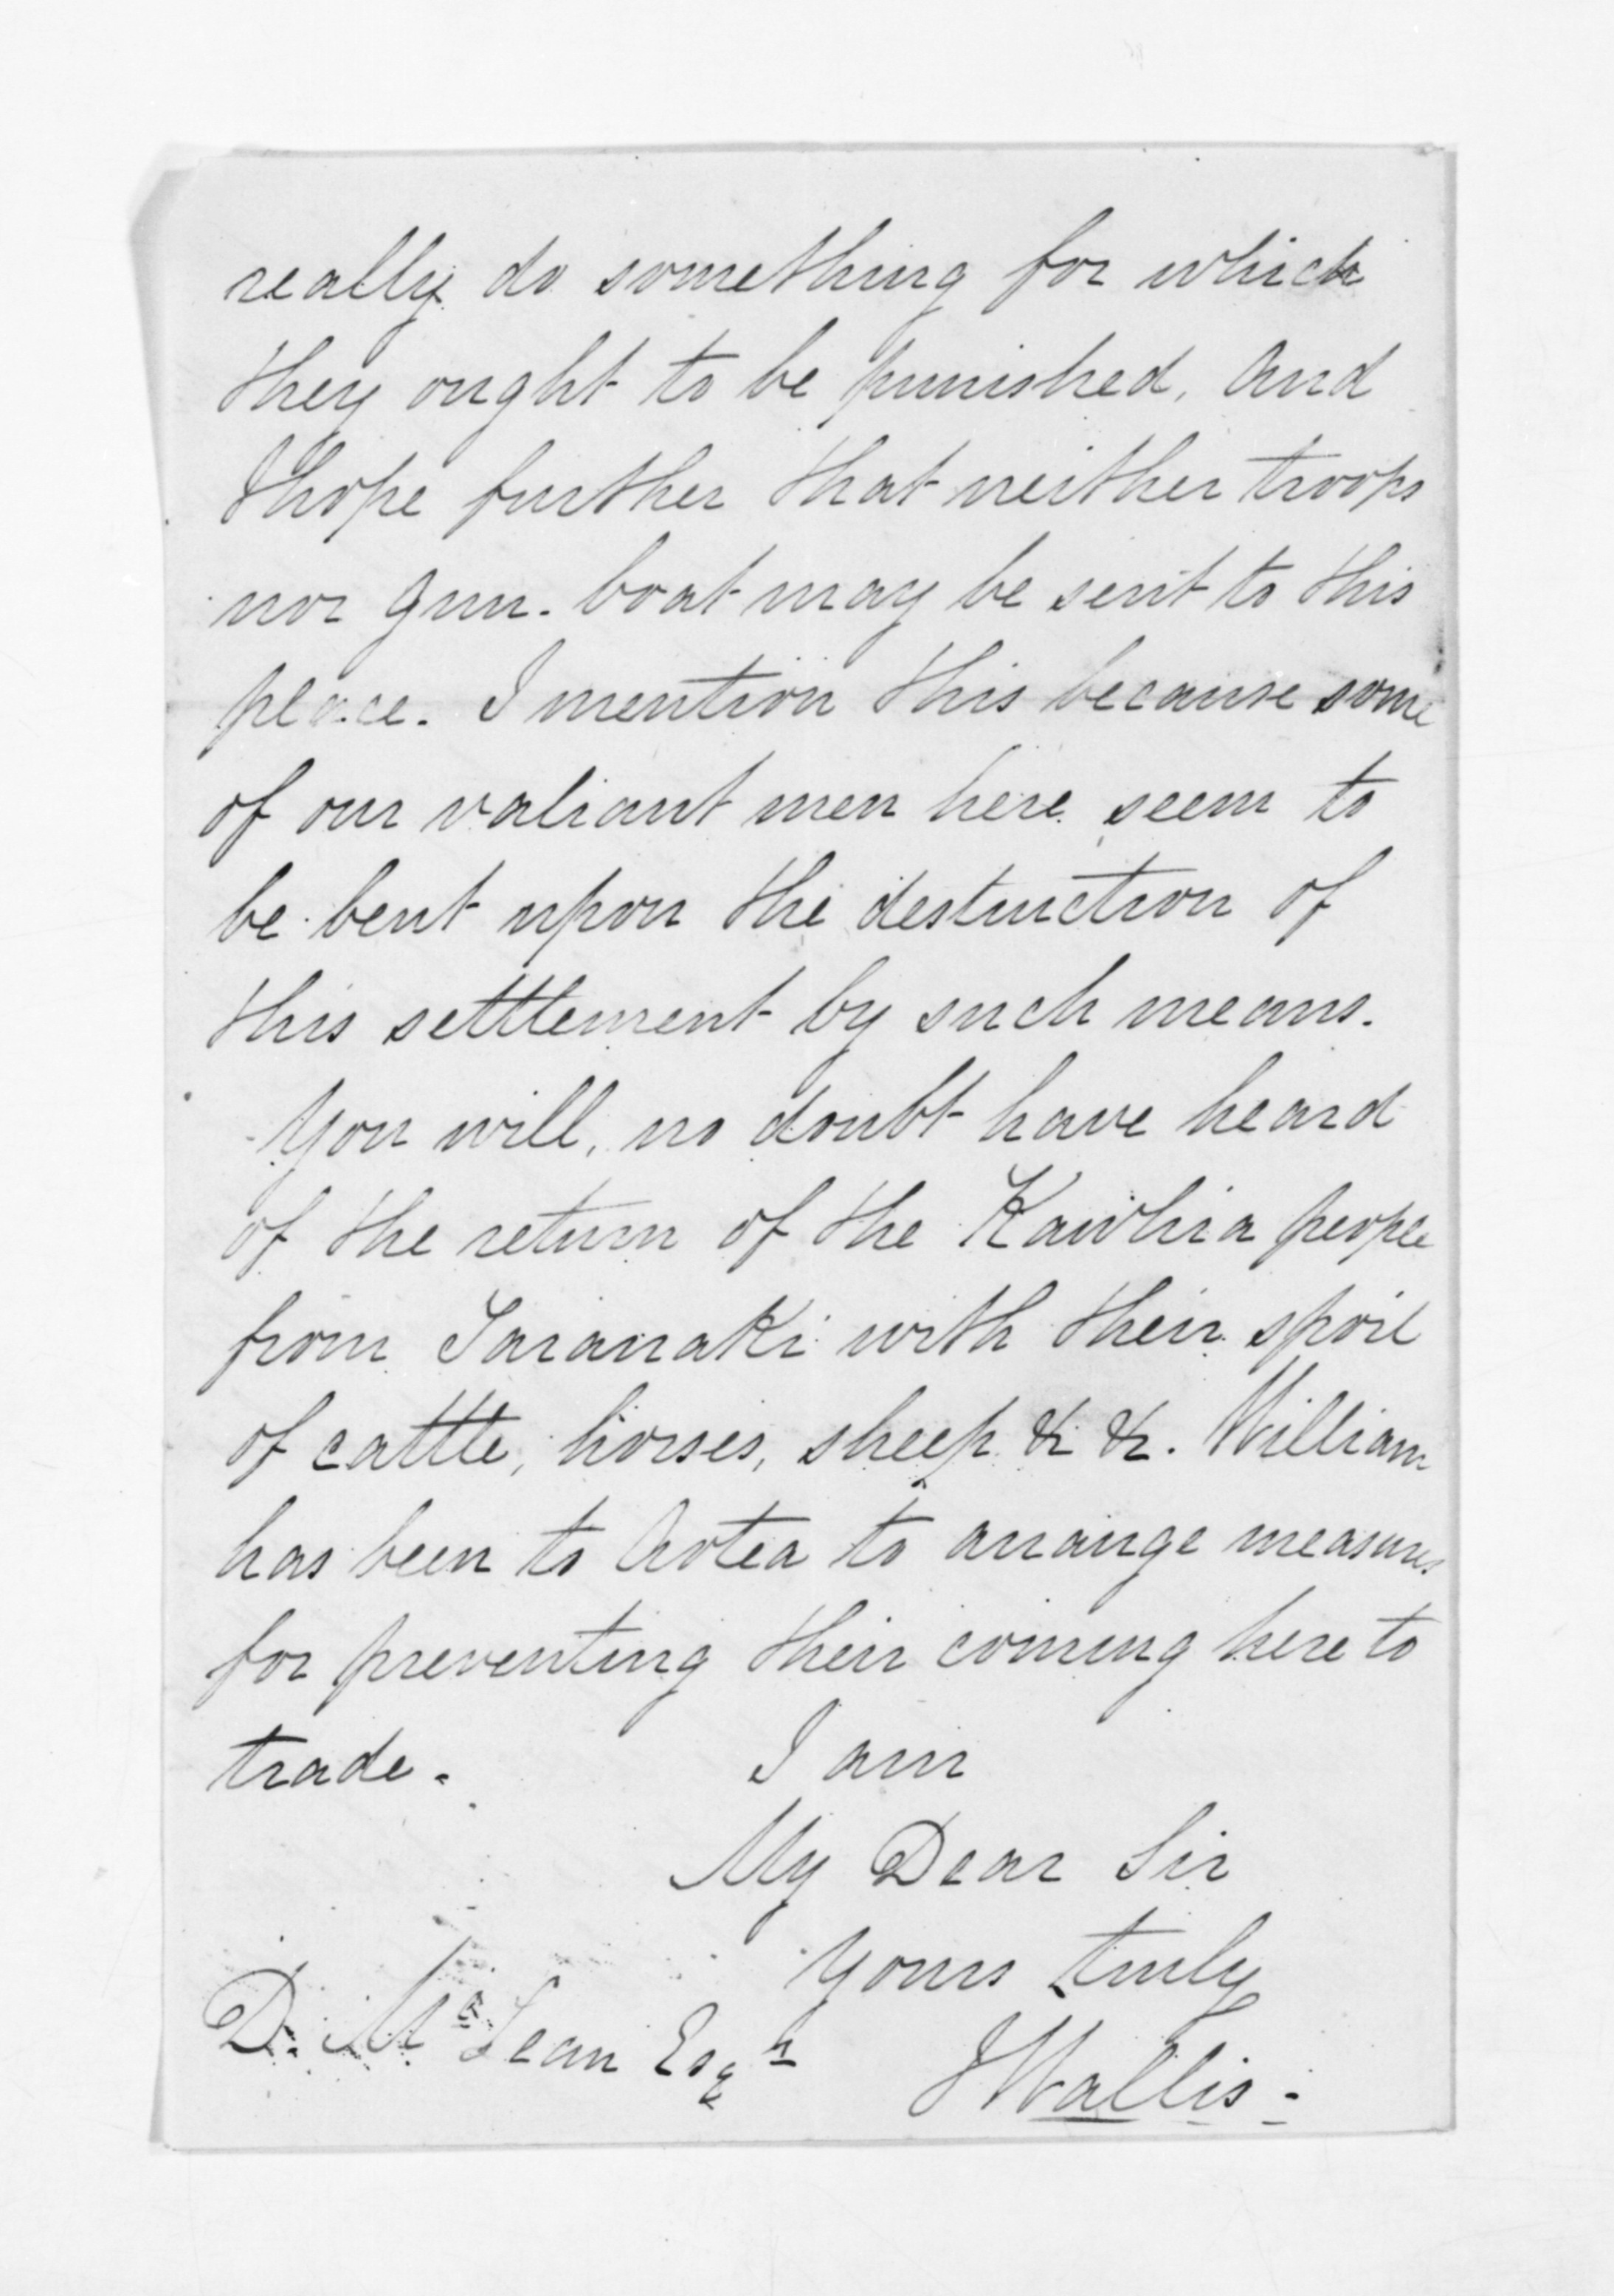 really do something for which
they ought to be punished, And
I hope further that neither troops
nor gun-boat may be sent to this
place. I mention this because some
of our valiant men here seem to
be bent upon the destruction of
this settlement by such means.
You will, no doubt have heard
of the return of the Kawhia people
from Taranaki with their spoil
of cattle, horses, sheep &c &c. William
has been to Aotea to arrange measures
for preventing their coming here to
trade.
I am
My Dear Sir
Yours truly
J Wallis
D. McLean Esqr